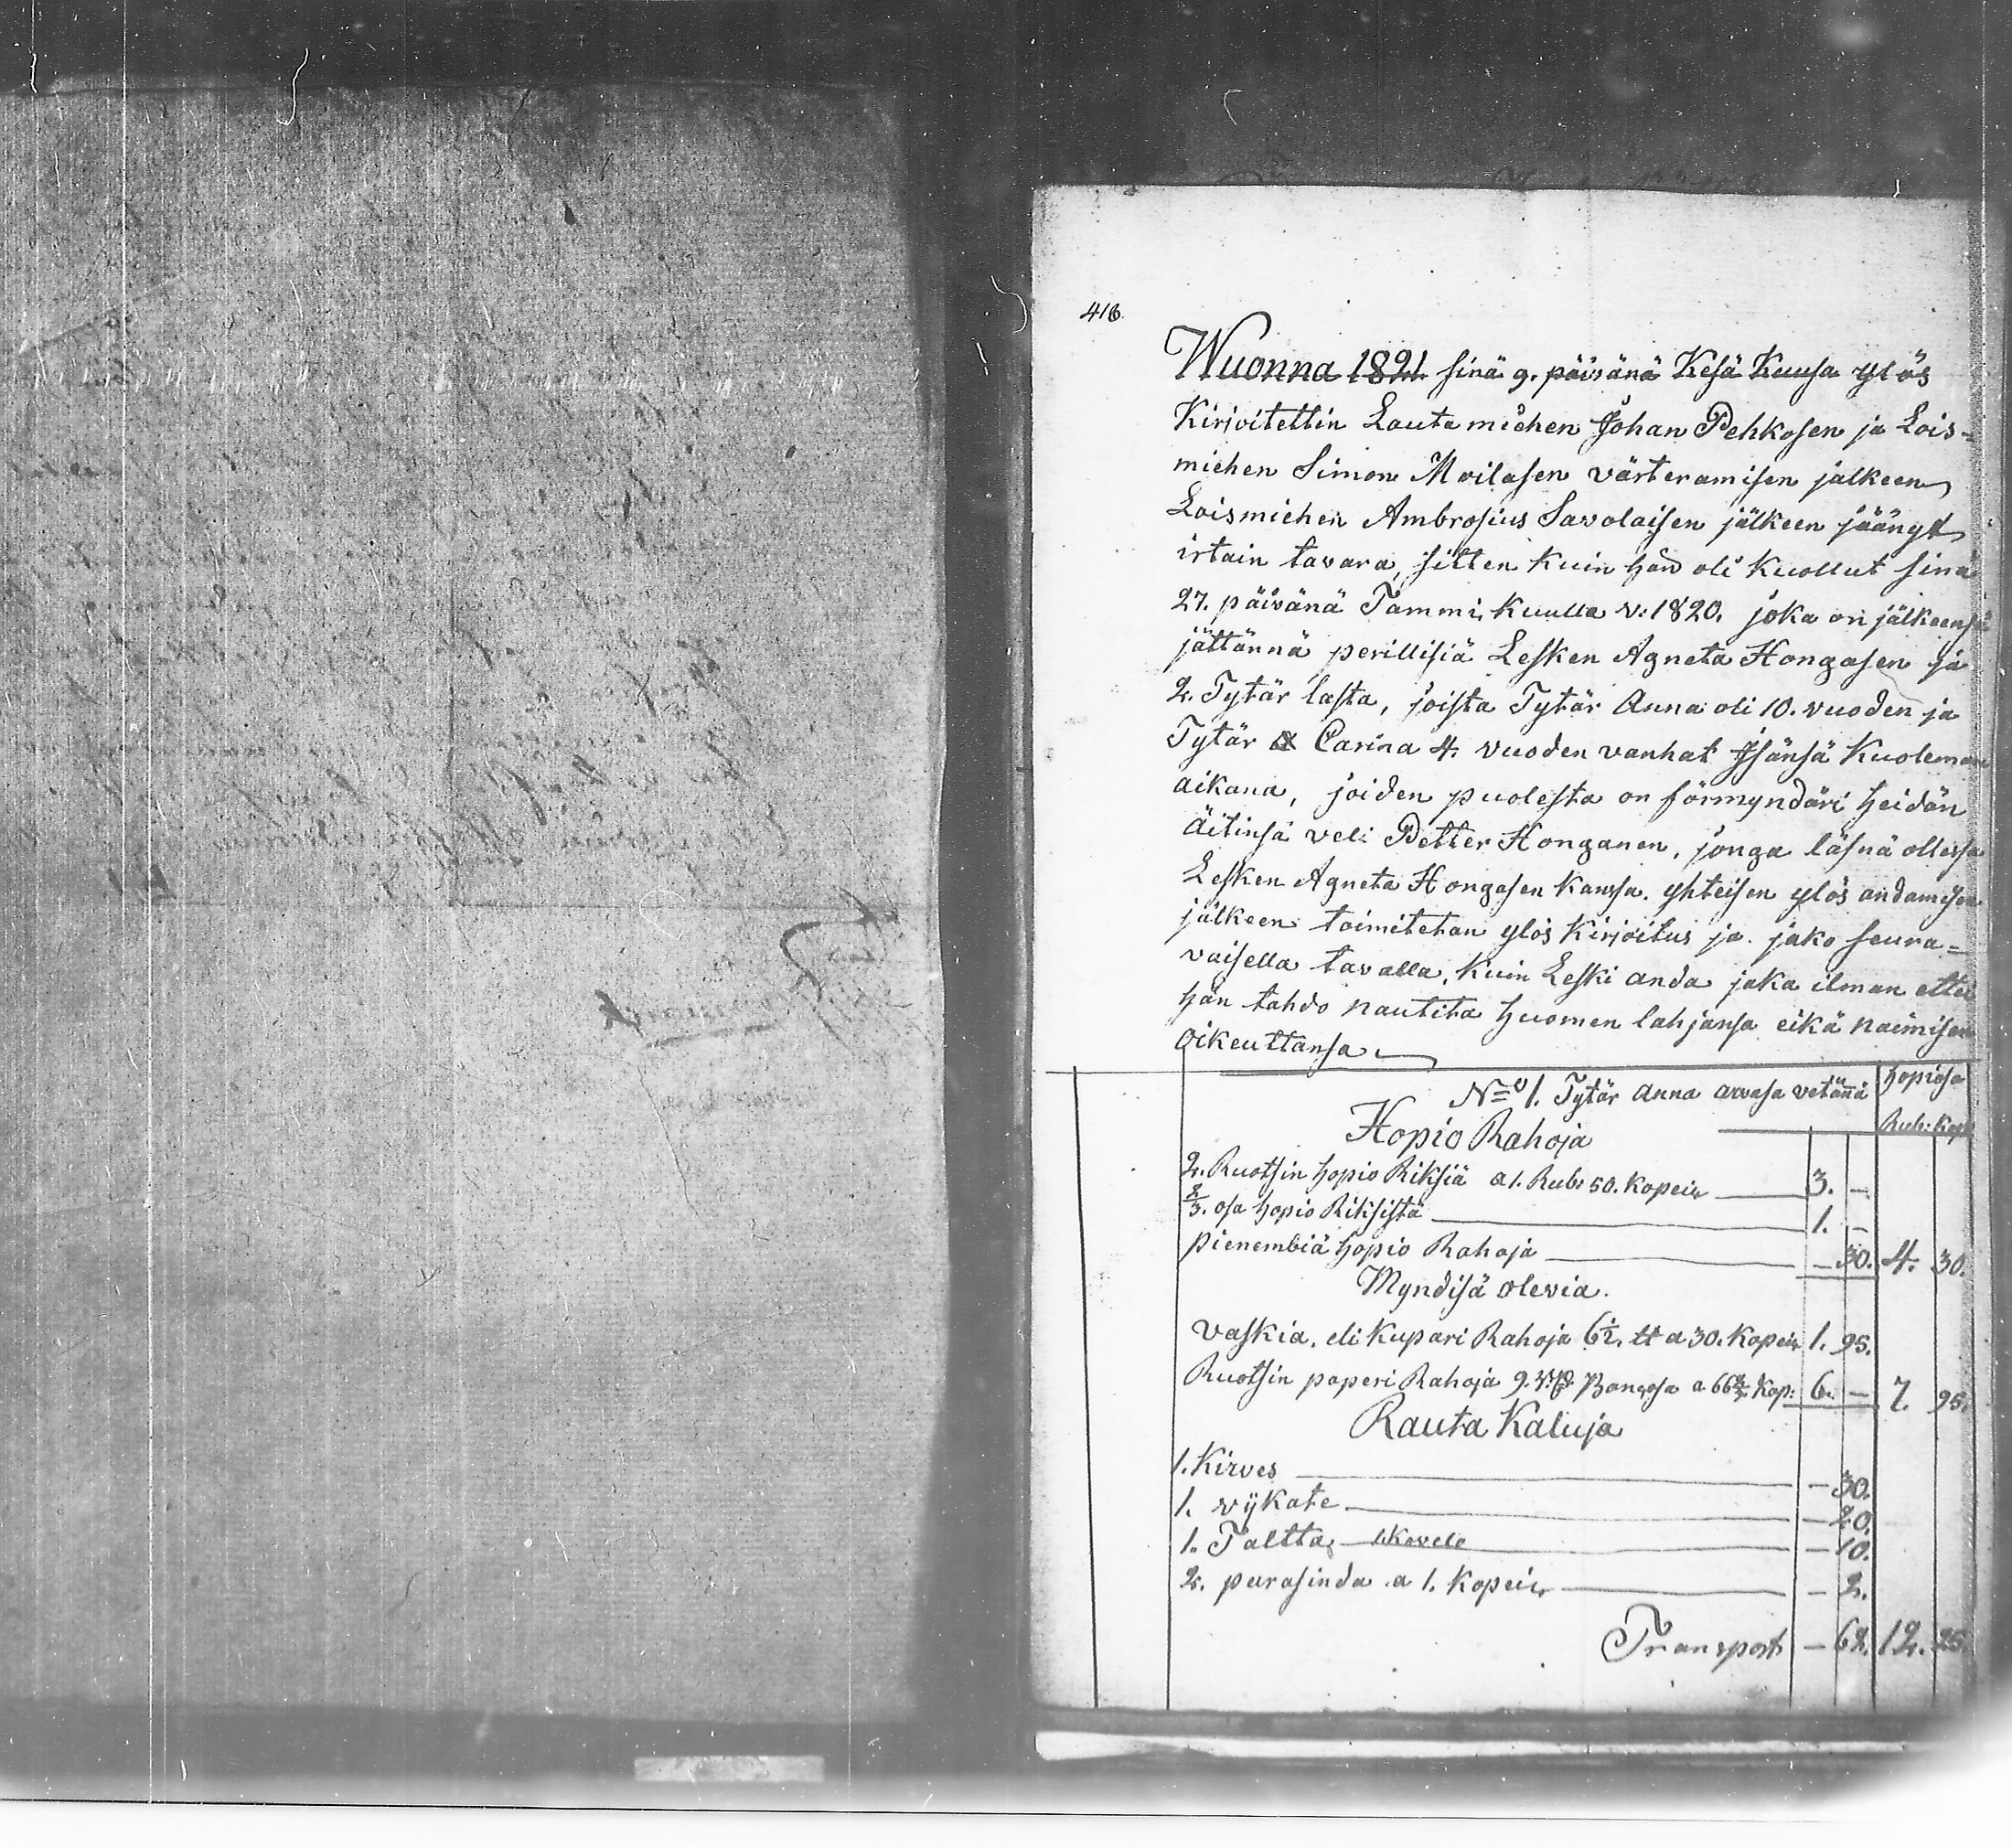 416.
Wuonna 1821 sinä 9. päivänä Kesä Kuusa ylös
Kirjoitettin Lautamiehen Johan Pehkosen ja Lois=
miehen Simon Moilasen värteramisen jälkeen
Loismiehen Ambrosius Savolaisen jälkeen jäänyt
irtain tavara, sitten kuin hän oli kuollut sinä
27. päivänä Tammi Kuulla v: 1820. joka on jälkeensä
jättännä perillisiä Lesken Agneta Hongasen ja
2. Tytär lasta, joista Tytär Anna oli 10. vuoden ja
Tytär Carina 4. vuoden vanhat Isänsä Kuoleman
aikana, joiden puolesta on förmyndäri heidän
äitinsä veli Petter Honganen, jonga läsnä ollessa
Lesken Agneta Hongasen kanssa. yhteisen ylös andamisen
jälkeen toimitetan ylös Kirjoitus ja jako seura=
vaisella tavalla, kuin Leski anda jaka ilman ettei
hän tahdo nautita huomen lahjansa eikä naimisen
Oikeuttansa
No 1. Tytär Anna arvasa vetännä hopiasa
Hopio Rahoja Rub: Kop:
2. Ruotsin hopio Riksiä a 1. Rub: 50. Kopeik 3. —
2/3. osa hopio Riksistä 1. —
pienembiä hopio Rahoja — 30. 4. 30.
Myndisä olevia.
vaskia, eli kupari Rahoja 6 1/2. tt a 30. Kopeik 1. 95.
Ruotsin paperi Rahoja 9. Bangosa a 66 2/3 Kop: 6. — 7. 95.
Rauta Kaluja
1. Kirves — 30.
1. vijkate — 20.
1. Taltta, 1. Kovele — 10.
2. purasinda a 1. Kopeik — 2.
Transport — 62. 12. 25.